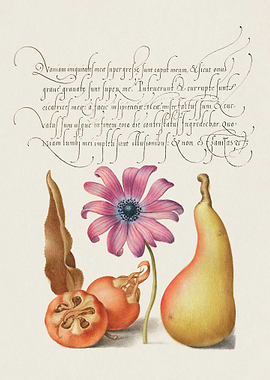 Quoniam iniquitates meæ supergressæ sunt caput meum, et sicut onus
graue grauatæ sunt super me. Putruerunt et corruptæ sunt
cicatrices meæ, à facie insipientiæ meæ. Miser factus sum, et cur-
uatus sum usque in finem tota die contristatus ingrediebar. Quo-
niam lumbi mei impleti sunt illusionibus, et non est sanitas etc.